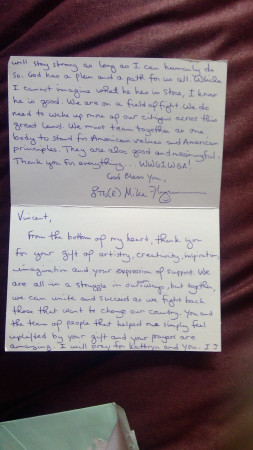 will stay strong as long as I can humanly do
so. God has a plan and a path for us all. While
I cannot imagine what he has in store, I know
he is good. We are on a field of fight. We do
need to wake up more of our citizens across this
great land. We must team together as one
body to stand for American values and American
principles. They are also good and meaningful.
Thank you for everything... WWG1WGA!
God Bless You,
Mike Flynn
Vincent,
From the bottom of my heart, thank you
for your gift of artistry, creativity, inspiration,
imagination and your expression of support. We
are all in a struggle in our ways, but together,
we can unite and succeed as we fight back
those that want to change our country. You and
the team of people that helped me simply feel
uplifted by your gift and your prayers are
amazing. I will pray for Kathryn and you. I I